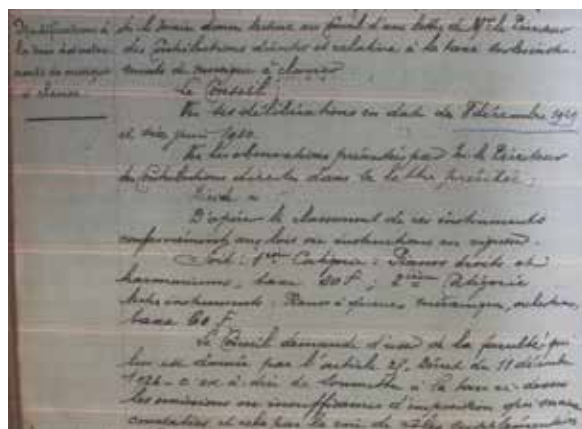 Modifications à
la taxe des instru-
ments de musique
à clavier
M. le Maire donne lecture au Conseil d'une lettre de Mr le Directeur
des Contributions directes et relative à la taxe sur les instru-
ments de musique à clavier
Le Conseil,
Vu ses délibérations en date du 8 décembre 1929
et six juin 1930.
Vu les observations présentées par M. le Directeur
des Contributions directes dans sa lettre précitée;
D'opérer le classement de ces instruments
conformément aux lois ou instructions en vigueur.
Soit: 1ère Catégorie: Pianos droits et
harmoniums, taxe 30 F; 2ème Catégorie
Autres instruments: Pianos à queue, mécanique,
taxe 60 F.
Le Conseil demande d'user de la faculté qui
lui est donnée par l'article 25, Décret du 11 décembre
1926 - c'est à dire de soumettre à la taxe ci-dessus
les omissions ou insuffisances d'imposition qui seraient
constatées, et cela par la voie de rôles supplémentaires